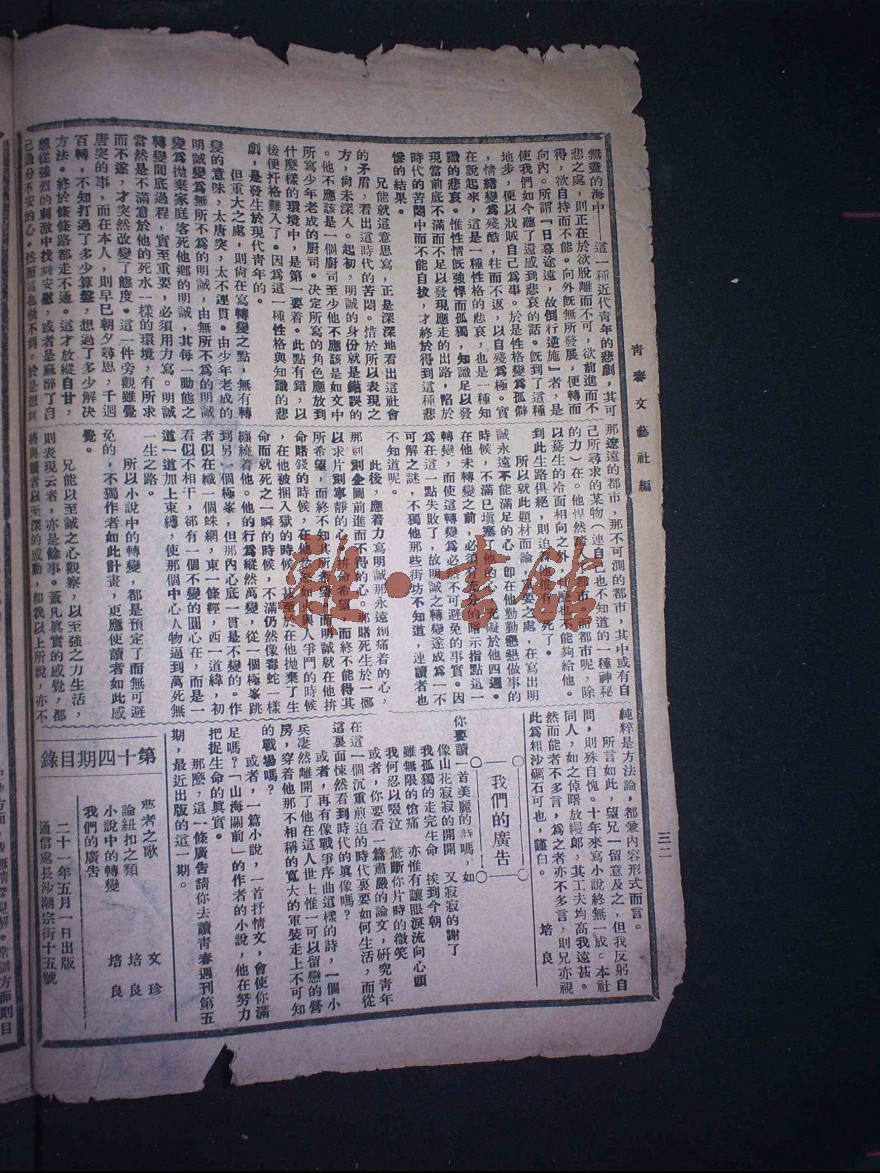 青春文藝社編
三二
無盡的海中——這一種近代青年的悲劇，其可
悲之處，則正在於欲脫離而不可，欲前進而不
得，欲自持而不能。向外既無所發展，便轉而
向內。所謂「日暮途遠，故倒行逆施」者，是
使我們如今聽了還感到悲哀的話。既到了這種
地步，便以戕賊自己為事。於是性格變為孤僻
，情緒變為殘酷，往而不返，以自殘為極。實
在說起來，這是一種性格的悲哀，也是一種知
識的悲哀。惟性情既強悍而孤獨，知識足以發
現當前底不滿而不足以發現應走的出路，陷於
時代的苦悶中而不能自拔，才終於得到這種悲
慘的結果。
兄能就這意思寫，正是深深地看出這社會
的矛盾，看出這時代的苦悶。惜於所以表現之
方，尚未深入。起初，明誠的身份就是錯誤的
。他不應該是一個廚司至少他不應該是如文中
所寫少年老成的廚司。決定所寫的角色應放到
什麼樣的環境中，是第一要着。此點有錯，以
後便扞格難入了。因為這一種性格與知識的悲
劇，是發生於現代青年的。
但重大之處，則尚在寫轉變之點，無有轉
變的意味，太唐突，太不連貫。由少年老成的
明誠變為無所不為的明誠，由無所不為的明誠
變為拋棄家庭客死他鄉的明誠，其每一動態之
轉變間底過程，實至重要，必須用力寫。明誠
當然是不滿意於他的死水一樣的環境，有所求
而不遂，才突然改變了態度。這一件旁觀雖覺
唐突的事，而在本人，則早已朝夕尋思，千迴
百轉，不知打過了多少算盤，想過了多少解決
方法。終於條條路都走不通。這才放縱自甘，
想從強烈的刺激中找到安慰，或者是麻醉了自
己過分不安的心。然而這也做不到。於是想到
那遼遠的都市，那不可測的都市，其中或有自
己所尋求的某物（連自己也不知道的一種神秘
的力）在。他悍然
以驀生的冷面相向之外，什麼也不能夠給他。
到此生路俱絕，則迫
所以就此題材而論，
要之處，在寫出明
誠永遠不能滿足的心。即在他勤勤懇懇做事的
時候，不滿已填塞
他的
充礙於他四週。
在他未轉變之前，必須有充分的暗示指點這一
轉變，而使這轉變為必然不可避免的事實。因
為在這一點失敗了，故明誠之轉變遂成為一不
可解之謎，不獨他那些街坊不知道，連讀者也
不知道呢。
此後，應着力寫明誠那永遠創痛着的心，
那刻刻企圖前進而不得的心。那賭死生於一擲
以求片刻寧靜的心。拚命希望，而終不能得其
所希望，而終不知其所希望，而明誠就在他拚
命賭錢的時候，在他
如火與人爭鬥的時候
，在他被捆入獄的時候，甚至於在他拋棄了生
命而就死之一瞬的時候，不滿仍然像毒蛇一樣
纏繞着他。他的行為縱然萬變，從一個極峯跳
到另一個極峯，但那內心底一貫是不變的。作
者似在織一個蛛網，東一條經，西一道緯，初
看似不相干，卻有一個不變的圓心在，而是一
道一道加上束縛，使那個中心人物逼到萬死無
一生之路。
所以小說中的轉變，都是預定了而無可避
免的，不獨作者如此計畫，更應使讀者如此感
覺。
兄能以至誠之心觀察，以至強之力生活，
則表現云者，亦是餘事。蓋凡真實的感覺，都
將與讀者以至深的感動，如我以上所說，亦不
純粹是方法論，都兼內容形式而言。
所言如此，望兄一留意及之，但我反躬自
問，則殊自愧。十年來寫小說終無一成。本社
同人，如之倬曙放縵郎，其工夫均高我遠甚。
然而能者不多言，為之者亦不多言，則兄亦視
此為粗沙礪石可也，謹白。　培良
我們的廣告
你要讀一首美麗的詩嗎，如
像山花寂寂的開開　又寂寂的謝了
我孤獨的走完生命　挨到今朝
雖無限的愴痛　亦惟有讓眼淚流向心頭
我何忍以啜泣　驚斷你片時的微笑
或者，你要看一篇肅嚴的論文，研究青年
在這一個沉重煎迫的時代裏要如何生活，而從
這裏面悚然看到時代的真像嗎？
或者，再有像戰爭序曲這樣的詩，一個小
兵淒然離開了他在這人世上惟一可以留戀的營
房，穿着他那不相稱的寬大的軍裝走上不可知
的戰場嗎？
或者，一篇小說，一首抒情文，會使你滿
足嗎？「山海關前」的作者的小說，他在努力
把捉生命的真實。
那麼，這一條廣告請你去讀青春週刊第五
期，最近出版的這一期。
第十四期目錄
死者之歌　文珍
論紐扣之類　培良
小說中的轉變　培良
我們的廣告
二十一年五月一日出版
通信處長沙潮宗街十五號